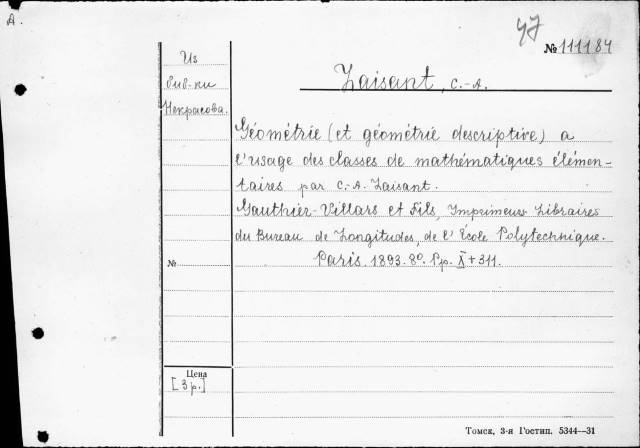 A.
47
№ 111184
Из
биб-ки
Некрасова.
Laisant, C.-A.
Géométrie (et géométrie descriptive) a
l'usage des classes de mathématiques élémen-
taires par C.-A. Laisant.
Gauthier-Villars et Fils, Imprimeurs Libraires
du Bureau de Longitudes, de l'École Polytechnique.
Paris. 1893. 8°. Pp. X + 311.
№
Цена
[3 р.]
Томск, 3-я Гостип. 5344—31